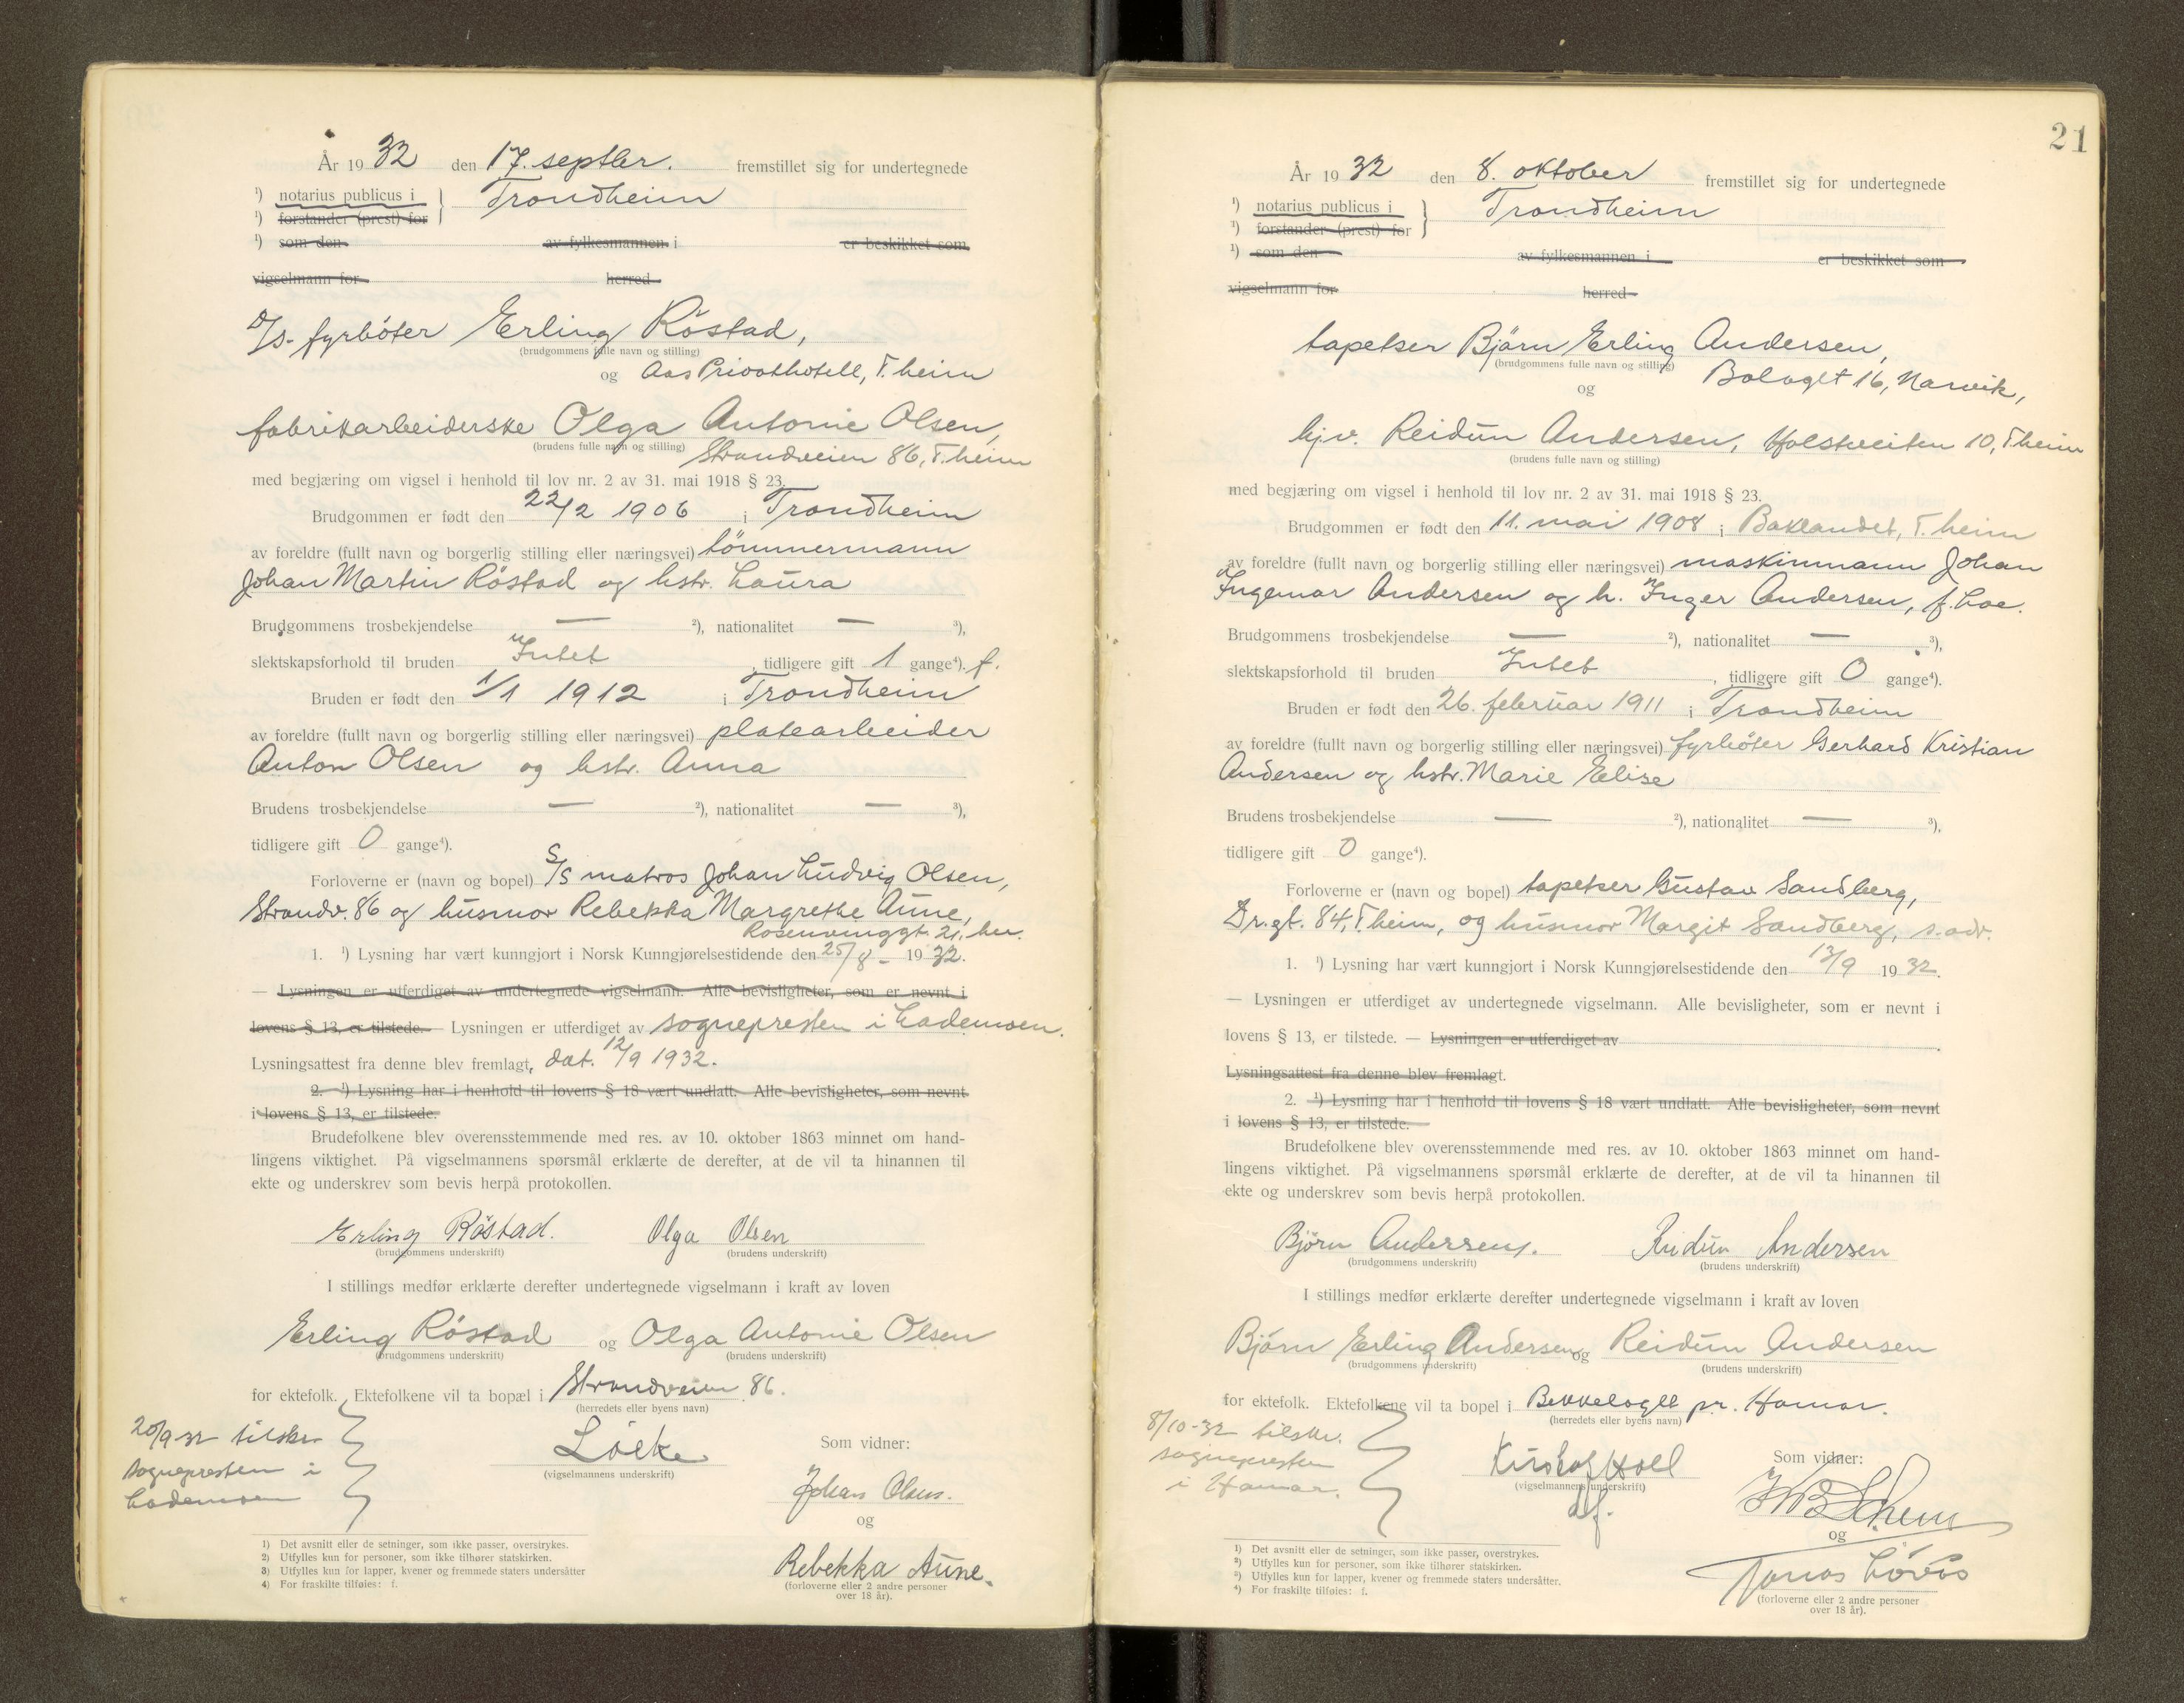 År 19 32 den 17. septbr. fremstillet sig for undertegnede
¹) notarius publicus i } Trondheim
¹) forstander (prest) for
¹) som den av fylkesmannen i er beskikket som
vigselmann for herred
D/S. fyrbøter Erling Röstad,
(brudgommens fulle navn og stilling)
og Aas Privathotell, T.heim
fabrikarbeiderske Olga Antonie Olsen,
(brudens fulle navn og stilling) Strandveien 86, T.heim
med begjæring om vigsel i henhold til lov nr. 2 av 31. mai 1918 § 23.
Brudgommen er født den 22/2 1906 i Trondheim
av foreldre (fullt navn og borgerlig stilling eller næringsvei) tömmermann
Johan Martin Röstad og hstr. Laura
Brudgommens trosbekjendelse — ²), nationalitet — ³),
slektskapsforhold til bruden Intet, tidligere gift 1 gange⁴). f.
Bruden er født den 1/1 1912 i Trondheim
av foreldre (fullt navn og borgerlig stilling eller næringsvei) platearbeider
Anton Olsen og hstr. Anna
Brudens trosbekjendelse — ²), nationalitet — ³),
tidligere gift 0 gange⁴).
Forloverne er (navn og bopel) S/S matros Johan Ludvig Olsen,
Strandv. 86 og husmor Rebekka Margrethe Aune,
Rosenvinggt. 21, her.
1. ¹) Lysning har vært kunngjort i Norsk Kunngjørelsestidende den 25/8 - 1932.
— Lysningen er utferdiget av undertegnede vigselmann. Alle bevisligheter, som er nevnt i
lovens § 13, er tilstede. — Lysningen er utferdiget av sognepresten i Lademoen.
Lysningsattest fra denne blev fremlagt, dat. 12/9 1932.
2. ¹) Lysning har i henhold til lovens § 18 vært undlatt. Alle bevisligheter, som nevnt
i lovens § 13, er tilstede.
Brudefolkene blev overensstemmende med res. av 10. oktober 1863 minnet om hand-
lingens viktighet. På vigselmannens spørsmål erklærte de derefter, at de vil ta hinannen til
ekte og underskrev som bevis herpå protokollen.
Erling Röstad. Olga Olsen
(brudgommens underskrift) (brudens underskrift)
I stillings medfør erklærte derefter undertegnede vigselmann i kraft av loven
Erling Röstad og Olga Antonie Olsen
(brudgommens underskrift) (brudens underskrift)
for ektefolk. Ektefolkene vil ta bopæl i Strandveien 86.
(herredets eller byens navn)
20/9 32 tilskr.
sognepresten i
Lademoen
(vigselmannens underskrift)
Som vidner:
Johan Olsen.
og
Rebekka Aune.
(forloverne eller 2 andre personer
over 18 år).
1) Det avsnitt eller de setninger, som ikke passer, overstrykes.
2) Utfylles kun for personer, som ikke tilhører statskirken.
3) Utfylles kun for lapper, kvener og fremmede staters undersåtter
4) For fraskilte tilføies: f.
21
År 19 32 den 8. oktober fremstillet sig for undertegnede
¹) notarius publicus i } Trondheim
¹) forstander (prest) for
¹) som den av fylkesmannen i er beskikket som
vigselmann for herred
tapetser Björn Erling Andersen,
(brudgommens fulle navn og stilling)
og Bolaget 16, Narvik,
hjv. Reidun Andersen, Holstveiten 10, T.heim
(brudens fulle navn og stilling)
med begjæring om vigsel i henhold til lov nr. 2 av 31. mai 1918 § 23.
Brudgommen er født den 11. mai 1908 i Baklandet, T.heim
av foreldre (fullt navn og borgerlig stilling eller næringsvei) maskinmann Johan
Ingemar Andersen og h. Inger Andersen, f. Loe.
Brudgommens trosbekjendelse — ²), nationalitet — ³),
slektskapsforhold til bruden Intet, tidligere gift 0 gange⁴).
Bruden er født den 26. februar 1911 i Trondheim
av foreldre (fullt navn og borgerlig stilling eller næringsvei) fyrbøter Gerhard Kristian
Andersen og hstr. Marie Elise
Brudens trosbekjendelse — ²), nationalitet — ³),
tidligere gift 0 gange⁴).
Forloverne er (navn og bopel) tapetser Gustav Sandberg,
Dr.gt. 84, T.heim, og husmor Margit Sandberg, s. adr.
1. ¹) Lysning har vært kunngjort i Norsk Kunngjørelsestidende den 13/9 1932.
— Lysningen er utferdiget av undertegnede vigselmann. Alle bevisligheter, som er nevnt i
lovens § 13, er tilstede. — Lysningen er utferdiget av
Lysningsattest fra denne blev fremlagt.
2. ¹) Lysning har i henhold til lovens § 18 vært undlatt. Alle bevisligheter, som nevnt
i lovens § 13, er tilstede.
Brudefolkene blev overensstemmende med res. av 10. oktober 1863 minnet om hand-
lingens viktighet. På vigselmannens spørsmål erklærte de derefter, at de vil ta hinannen til
ekte og underskrev som bevis herpå protokollen.
Bjørn Andersen. Reidun Andersen
(brudgommens underskrift) (brudens underskrift)
I stillings medfør erklærte derefter undertegnede vigselmann i kraft av loven
Björn Erling Andersen og Reidun Andersen
(brudgommens underskrift) (brudens underskrift)
for ektefolk. Ektefolkene vil ta bopel i Bekkelaget pr. Hamar.
(herredets eller byens navn)
8/10-32 tilskr.
sognepresten
i Hamar.
(vigselmannens underskrift)
Som vidner:
og
(forloverne eller 2 andre personer
over 18 år).
¹) Det avsnitt eller de setninger, som ikke passer, overstrykes.
²) Utfylles kun for personer, som ikke tilhører statskirken.
³) Utfylles kun for lapper, kvener og fremmede staters undersåtter.
⁴) For fraskilte tilføies: f.